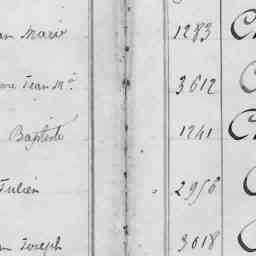 an Marie 1283 C
me Jean Mie 3612 C
Baptiste 1241 C
Julien 2956 C
Joseph 3018 C